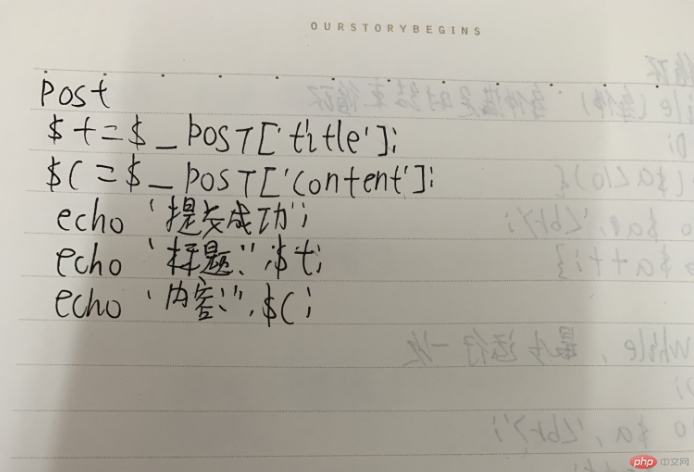 OURSTORYBEGINS
post
$t=$_POST['title'];
$c=$_POST['content'];
echo '提交成功';
echo '标题:'.$t;
echo '内容:'.$c;
php 中文网